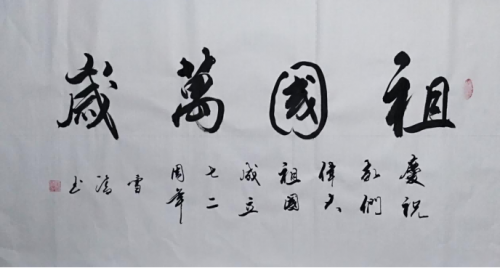 祖國萬歲
慶祝
我們
偉大
祖國
成立
七二
周年
雪
书